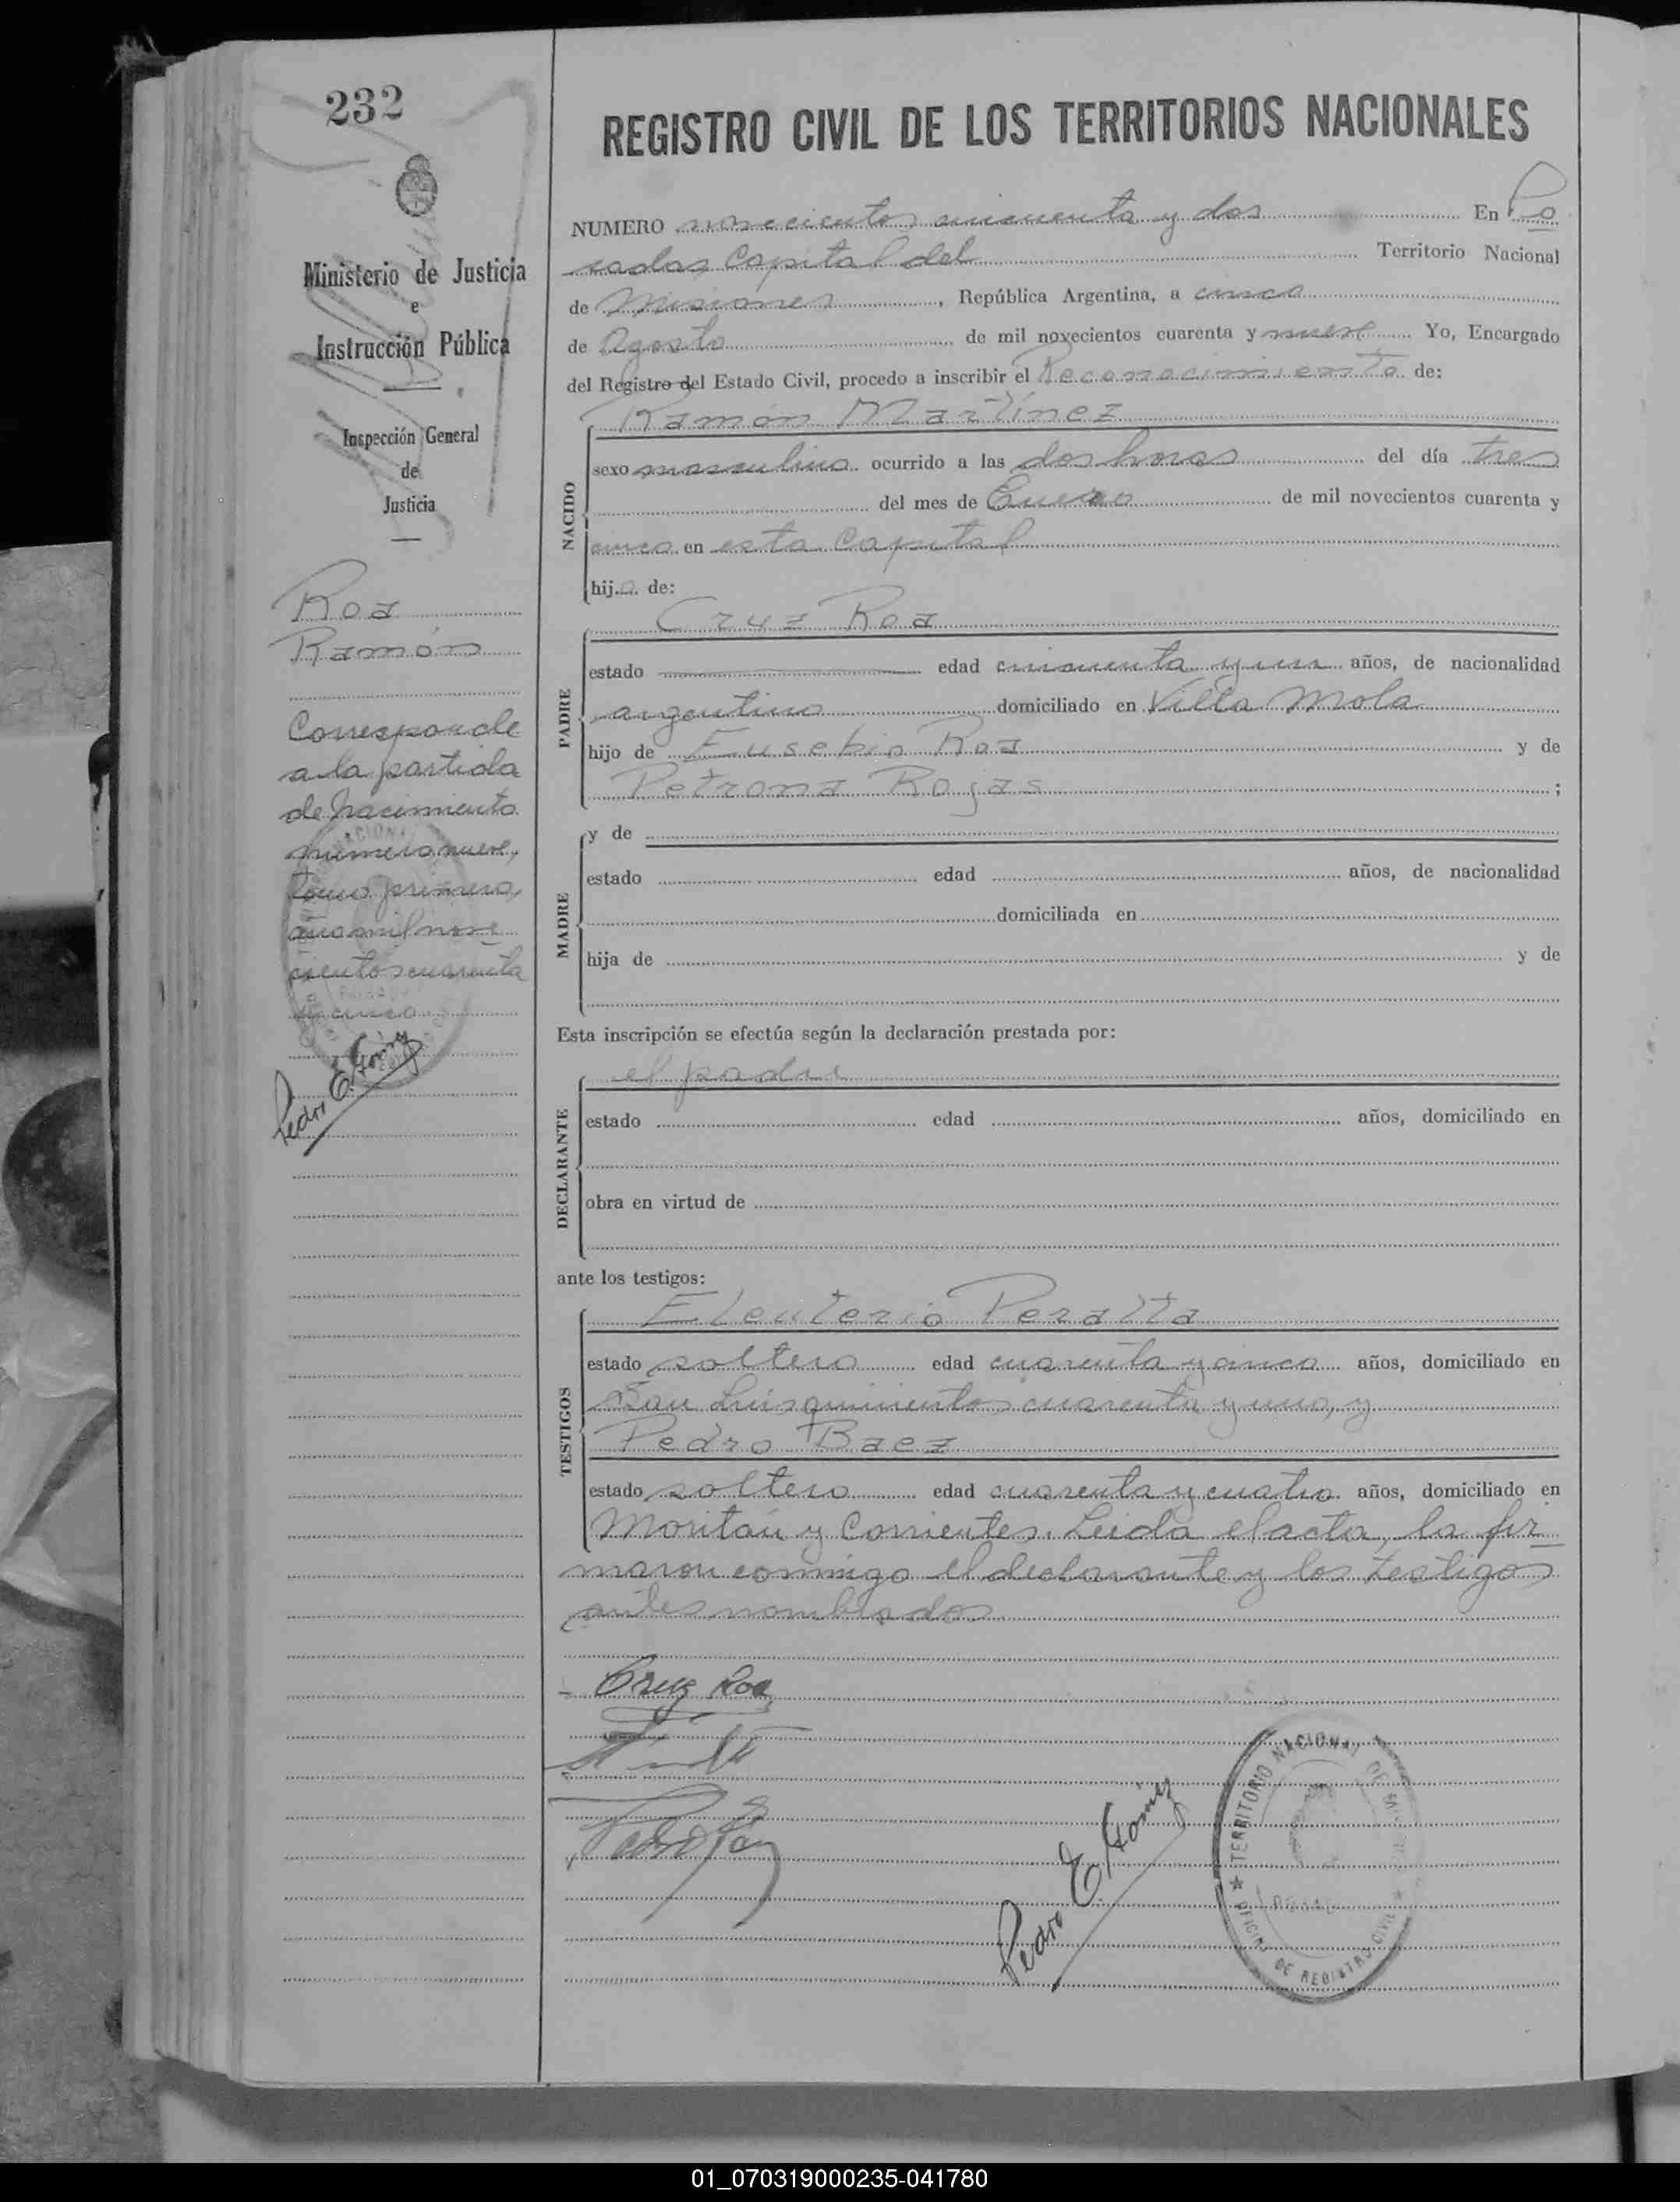 232
Ministerio de Justicia
e
Instrucción Pública
Inspección General
de
Justicia
Roa
Ramón
Corresponde
a la partida
de nacimiento
número nueve,
tomo primero,
año mil nove
cientos cuarenta
y cinco
Pedro E. Gómez
REGISTRO CIVIL DE LOS TERRITORIOS NACIONALES
NUMERO novecientos cincuenta y dos En Po
sadas Capital del Territorio Nacional
de Misiones, República Argentina, a cinco
de Agosto de mil novecientos cuarenta y nueve Yo, Encargado
del Registro del Estado Civil, procedo a inscribir el Reconocimiento de:
Ramón Martínez
NACIDO
sexo masculino ocurrido a las dos horas del día tres
del mes de Enero de mil novecientos cuarenta y
cinco en esta Capital
hijo de:
Cruz Roa
PADRE
estado edad cincuenta y un años, de nacionalidad
argentino domiciliado en Villa Mola
hijo de Eusebio Roa y de
Petrona Rojas ;
MADRE
y de
estado edad años, de nacionalidad
domiciliada en
hija de y de
Esta inscripción se efectúa según la declaración prestada por:
el padre
DECLARANTE
estado edad años, domiciliado en
obra en virtud de
ante los testigos:
Eleuterio Peralta
TESTIGOS
estado soltero edad cuarenta y cinco años, domiciliado en
San Luis quinientos cuarenta y uno, y
Pedro Baez
estado soltero edad cuarenta y cuatro años, domiciliado en
Moritán y Corrientes. Leída el acta, la fir
maron conmigo el declarante y los testigos
antes nombrados
Cruz Roa
Pedro E. Gómez
TERRITORIO NACIONAL DE MISIONES
OFICINA DE REGISTRO CIVIL
01_070319000235-041780